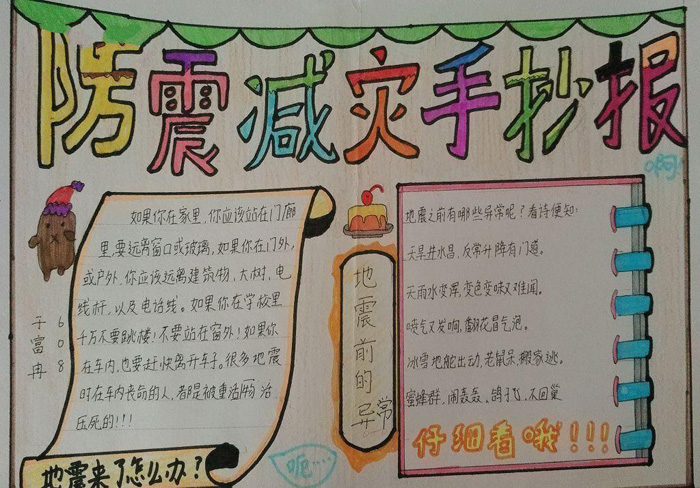 防震减灾手抄报
啊!
如果你在家里、你应该站在门廊
里、要远离窗口或玻璃,如果你在门外,
或户外、你应该远离建筑物,大树,电
线杆,以及电话线。如果你在学校里
千万不要跳楼!不要站在窗外!如果你
在车内,也要赶快离开车子。很多地震
时在车内丧命的人,都是被重活物
压死的!!!
地震来了怎么办?
608
于富冉
地震前的异常
地震之前有哪些异常呢?看诗便知:
天旱井水冒,反常升降有门道。
天雨水变浑,变色变味又难闻。
喷气又发响,翻花冒气泡。
冰雪地蛇出动,老鼠呆,搬家逃。
蜜蜂群,闹轰轰、鸽子飞、不回巢
仔细看哦!!!
呃....